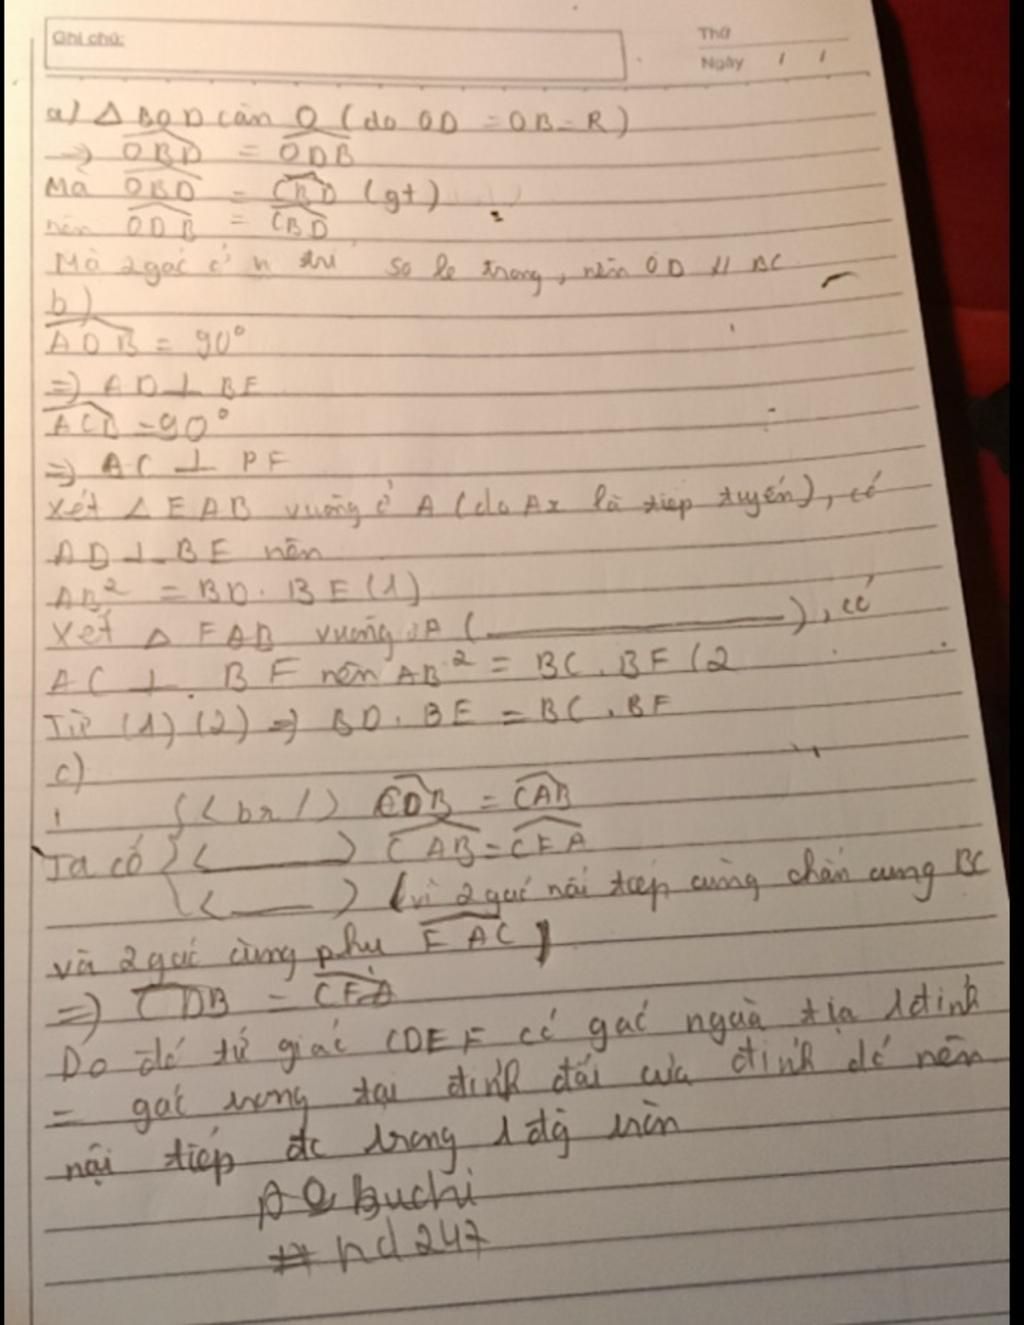 Ghi chú:
Thứ
Ngày / /
a) △ BOD cân O (do OD = OB = R)
→ OBD = ODB
Mà OBD = CBD (gt)
nên ODB = CBD
Mà 2 góc ở vị trí so le trong, nên OD // BC
b)
ADB = 90°
=> AD ⊥ BE
ACB = 90°
=> AC ⊥ BF
Xét △ EAB vuông ở A (do Ax là tiếp tuyến), có
AD ⊥ BE nên
AB² = BD . BE (1)
Xét △ FAB vuông ở A ( ), có
AC ⊥ . BF nên AB² = BC . BF (2
Từ (1) (2) => BD . BE = BC . BF
c)
{ < br / ) CDB = CAB
Ta có { < ) CAB = CFA
{ < ) (vì 2 góc nội tiếp cùng chắn cung BC
và 2 góc cùng phụ FAC)
=> CDB = CFA
Do đó tứ giác CDEF có góc ngoài tại 1 đỉnh
= góc trong tại đỉnh đối của đỉnh đó nên
nội tiếp đc trong 1 đg tròn
buchi
# nd 247